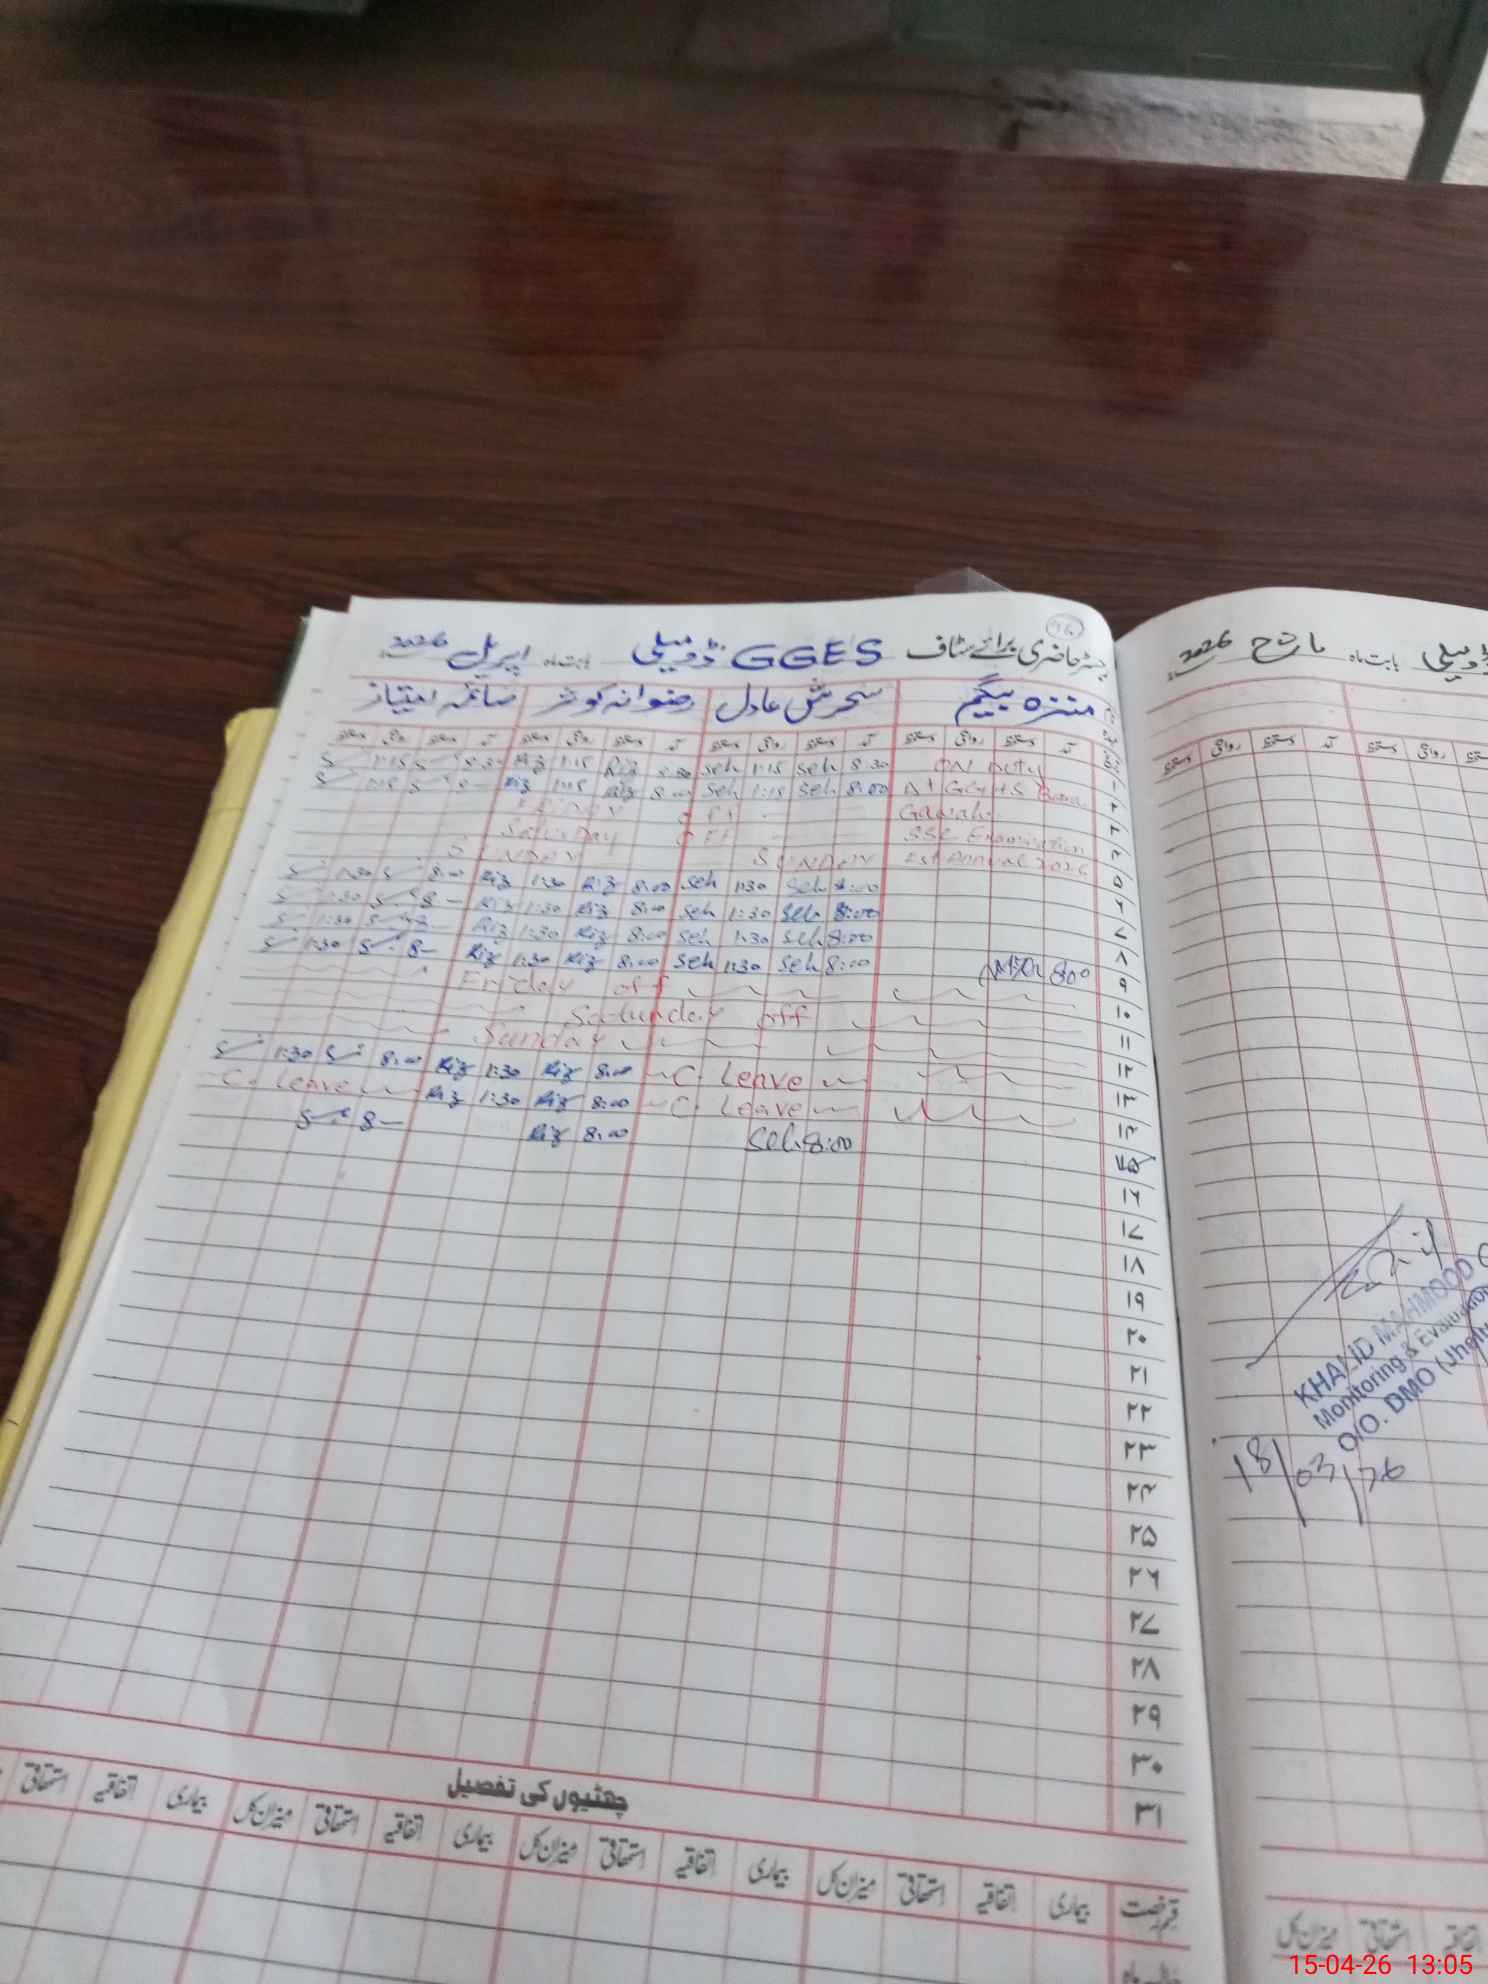 رجسٹر حاضری برائے سٹاف GGES ڈومیلی بابت ماہ اپریل 2026
منزہ بیگم سحرش عادل رضوانہ کوثر صائمہ امتیاز
آمد دستخط روانگی دستخط آمد دستخط روانگی دستخط آمد دستخط روانگی دستخط آمد دستخط روانگی دستخط
1:15 8:30 Riz 1:15 Riz 8:30 Seh 1:15 Seh 8:30 ON Duty
1:15 8 Riz 1:15 Riz 8:00 Seh 1:15 Seh 8:00 At GGHS
FRIDAY OFF
Saturday OFF SSC Examination
SUNDAY SUNDAY 1st Annual 2026
1:30 8:00 Riz 1:30 Riz 8:00 Seh 1:30 Seh 8:00
1:30 8 Riz 1:30 Riz 8:00 Seh 1:30 Seh 8:00
1:30 8 Riz 1:30 Riz 8:00 Seh 1:30 Seh 8:00
1:30 8 Riz 1:30 Riz 8:00 Seh 1:30 Seh 8:00 800
Friday off
Saturday off
Sunday
1:30 8:00 Riz 1:30 Riz 8:00 C. Leave
C. Leave Riz 1:30 Riz 8:00 C. Leave
8 Riz 8:00 Seh 8:00
۱
۲
۳
۴
۵
۶
۷
۸
۹
۱۰
۱۱
۱۲
۱۳
۱۴
۱۵
۱۶
۱۷
۱۸
۱۹
۲۰
۲۱
۲۲
۲۳
۲۴
۲۵
۲۶
۲۷
۲۸
۲۹
۳۰
۳۱
چھٹیوں کی تفصیل
قسم رخصت بیماری اتفاقیہ استحقاقی میزان کل بیماری اتفاقیہ استحقاقی میزان کل بیماری اتفاقیہ استحقاقی میزان کل بیماری اتفاقیہ استحقاقی
ڈومیلی بابت ماہ مارچ 2026
دستخط روانگی دستخط آمد دستخط روانگی
KHALID MAHMOOD
Monitoring & Evaluation
O/O. DMO (Jhelum
18/03/26
اتفاقیہ استحقاقی میزان کل
15-04-26 13:05